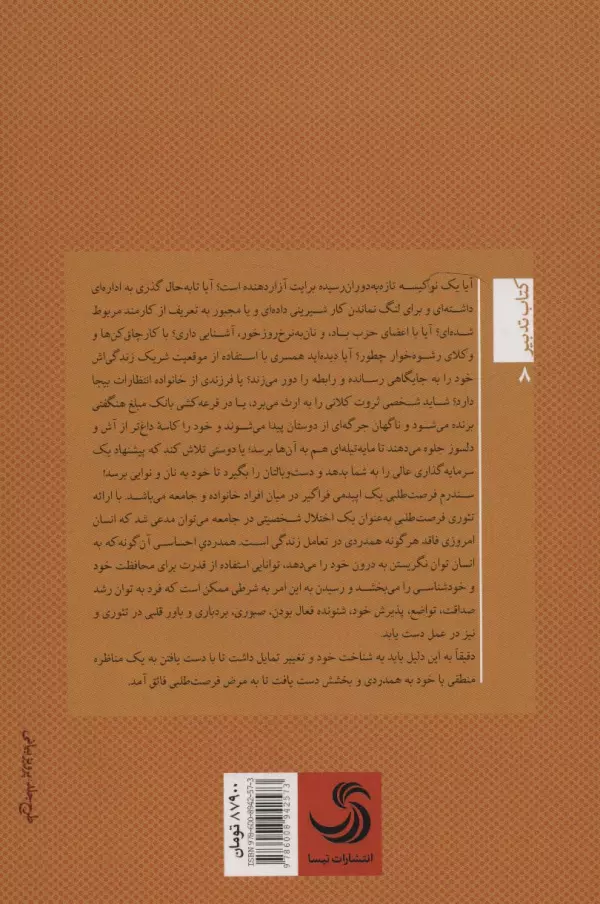 کتاب تدبیر
آیا یک نوکیسه تازه‌به‌دوران‌رسیده برایت آزاردهنده است؟ آیا تابه‌حال گذری به اداره‌ای
داشته‌ای و برای لنگ نماندن کار شیرینی داده‌ای و یا مجبور به تعریف از کارمند مربوط
شده‌ای؟ آیا با اعضای حزب باد، و نان‌به‌نرخ‌روزخور، آشنایی داری؟ با کارچاق‌کن‌ها و
وکلای رشوه‌خوار چطور؟ آیا دیده‌اید همسری با استفاده از موقعیت شریک زندگی‌اش
خود را به جایگاهی رسانده و رابطه را دور می‌زند؟ یا فرزندی از خانواده انتظارات بیجا
دارد؟ شاید شخصی ثروت کلانی را به ارث می‌برد، یا در قرعه‌کشی بانک مبلغ هنگفتی
برنده می‌شود و ناگهان جرگه‌ای از دوستان پیدا می‌شوند و خود را کاسهٔ داغ‌تر از آش و
دلسوز جلوه می‌دهند تا مایه‌تیله‌ای هم به آن‌ها برسد؛ یا دوستی تلاش کند که پیشنهاد یک
سرمایه‌گذاری عالی را به شما بدهد و دست‌وبالتان را بگیرد تا خود به نان و نوایی برسد!
سندرم فرصت‌طلبی یک اپیدمی فراگیر در میان افراد خانواده و جامعه می‌باشد. با ارائه
تئوری فرصت‌طلبی به‌عنوان یک اختلال شخصیتی در جامعه می‌توان مدعی شد که انسان
امروزی فاقد هرگونه همدردی در تعامل زندگی است. همدردیِ احساسی آن‌گونه‌که به
انسان توان نگریستن به درون خود را می‌دهد، توانایی استفاده از قدرت برای محافظت خود
و خودشناسی را می‌بخشد و رسیدن به این امر به شرطی ممکن است که فرد به توان رشد
صداقت، تواضع، پذیرش خود، شنونده فعال بودن، صبوری، بردباری و باور قلبی در تئوری و
نیز در عمل دست یابد.
دقیقاً به این دلیل باید به شناخت خود و تغییر تمایل داشت تا با دست یافتن به یک مناظره
منطقی با خود به همدردی و بخشش دست یافت تا به مرض فرصت‌طلبی فائق آمد.
طرح جلد: پرویز بیانی
۸۷۹۰۰ تومان
ISBN 978-600-8942-57-3
9 786008 942573
انتشارات تیسا